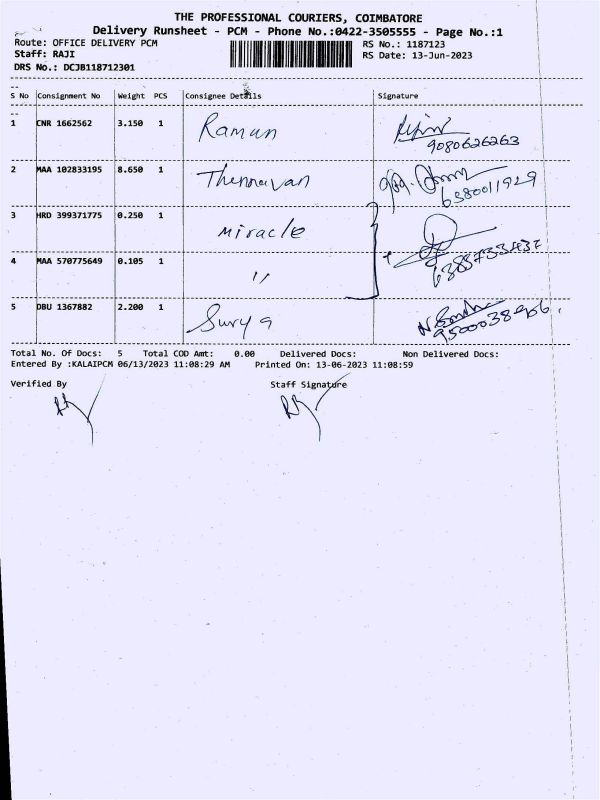 THE PROFESSIONAL COURIERS, COIMBATORE
Delivery Runsheet - PCM - Phone No.:0422-3505555 - Page No.:1
Route: OFFICE DELIVERY PCM RS No.: 1187123
Staff: RAJI RS Date: 13-Jun-2023
DRS No.: DCJB118712301
S No Consignment No Weight PCS Consignee Details Signature
1 CNR 1662562 3.150 1 Raman
9080626263
2 MAA 102833195 8.650 1 Thennavan
6380011929
3 HRD 399371775 0.250 1 miracle
4 MAA 570775649 0.105 1 "
5 DBU 1367882 2.200 1 Surya
Total No. Of Docs: 5 Total COD Amt: 0.00 Delivered Docs: Non Delivered Docs:
Entered By :KALAIPCM 06/13/2023 11:08:29 AM Printed On: 13-06-2023 11:08:59
Verified By Staff Signature